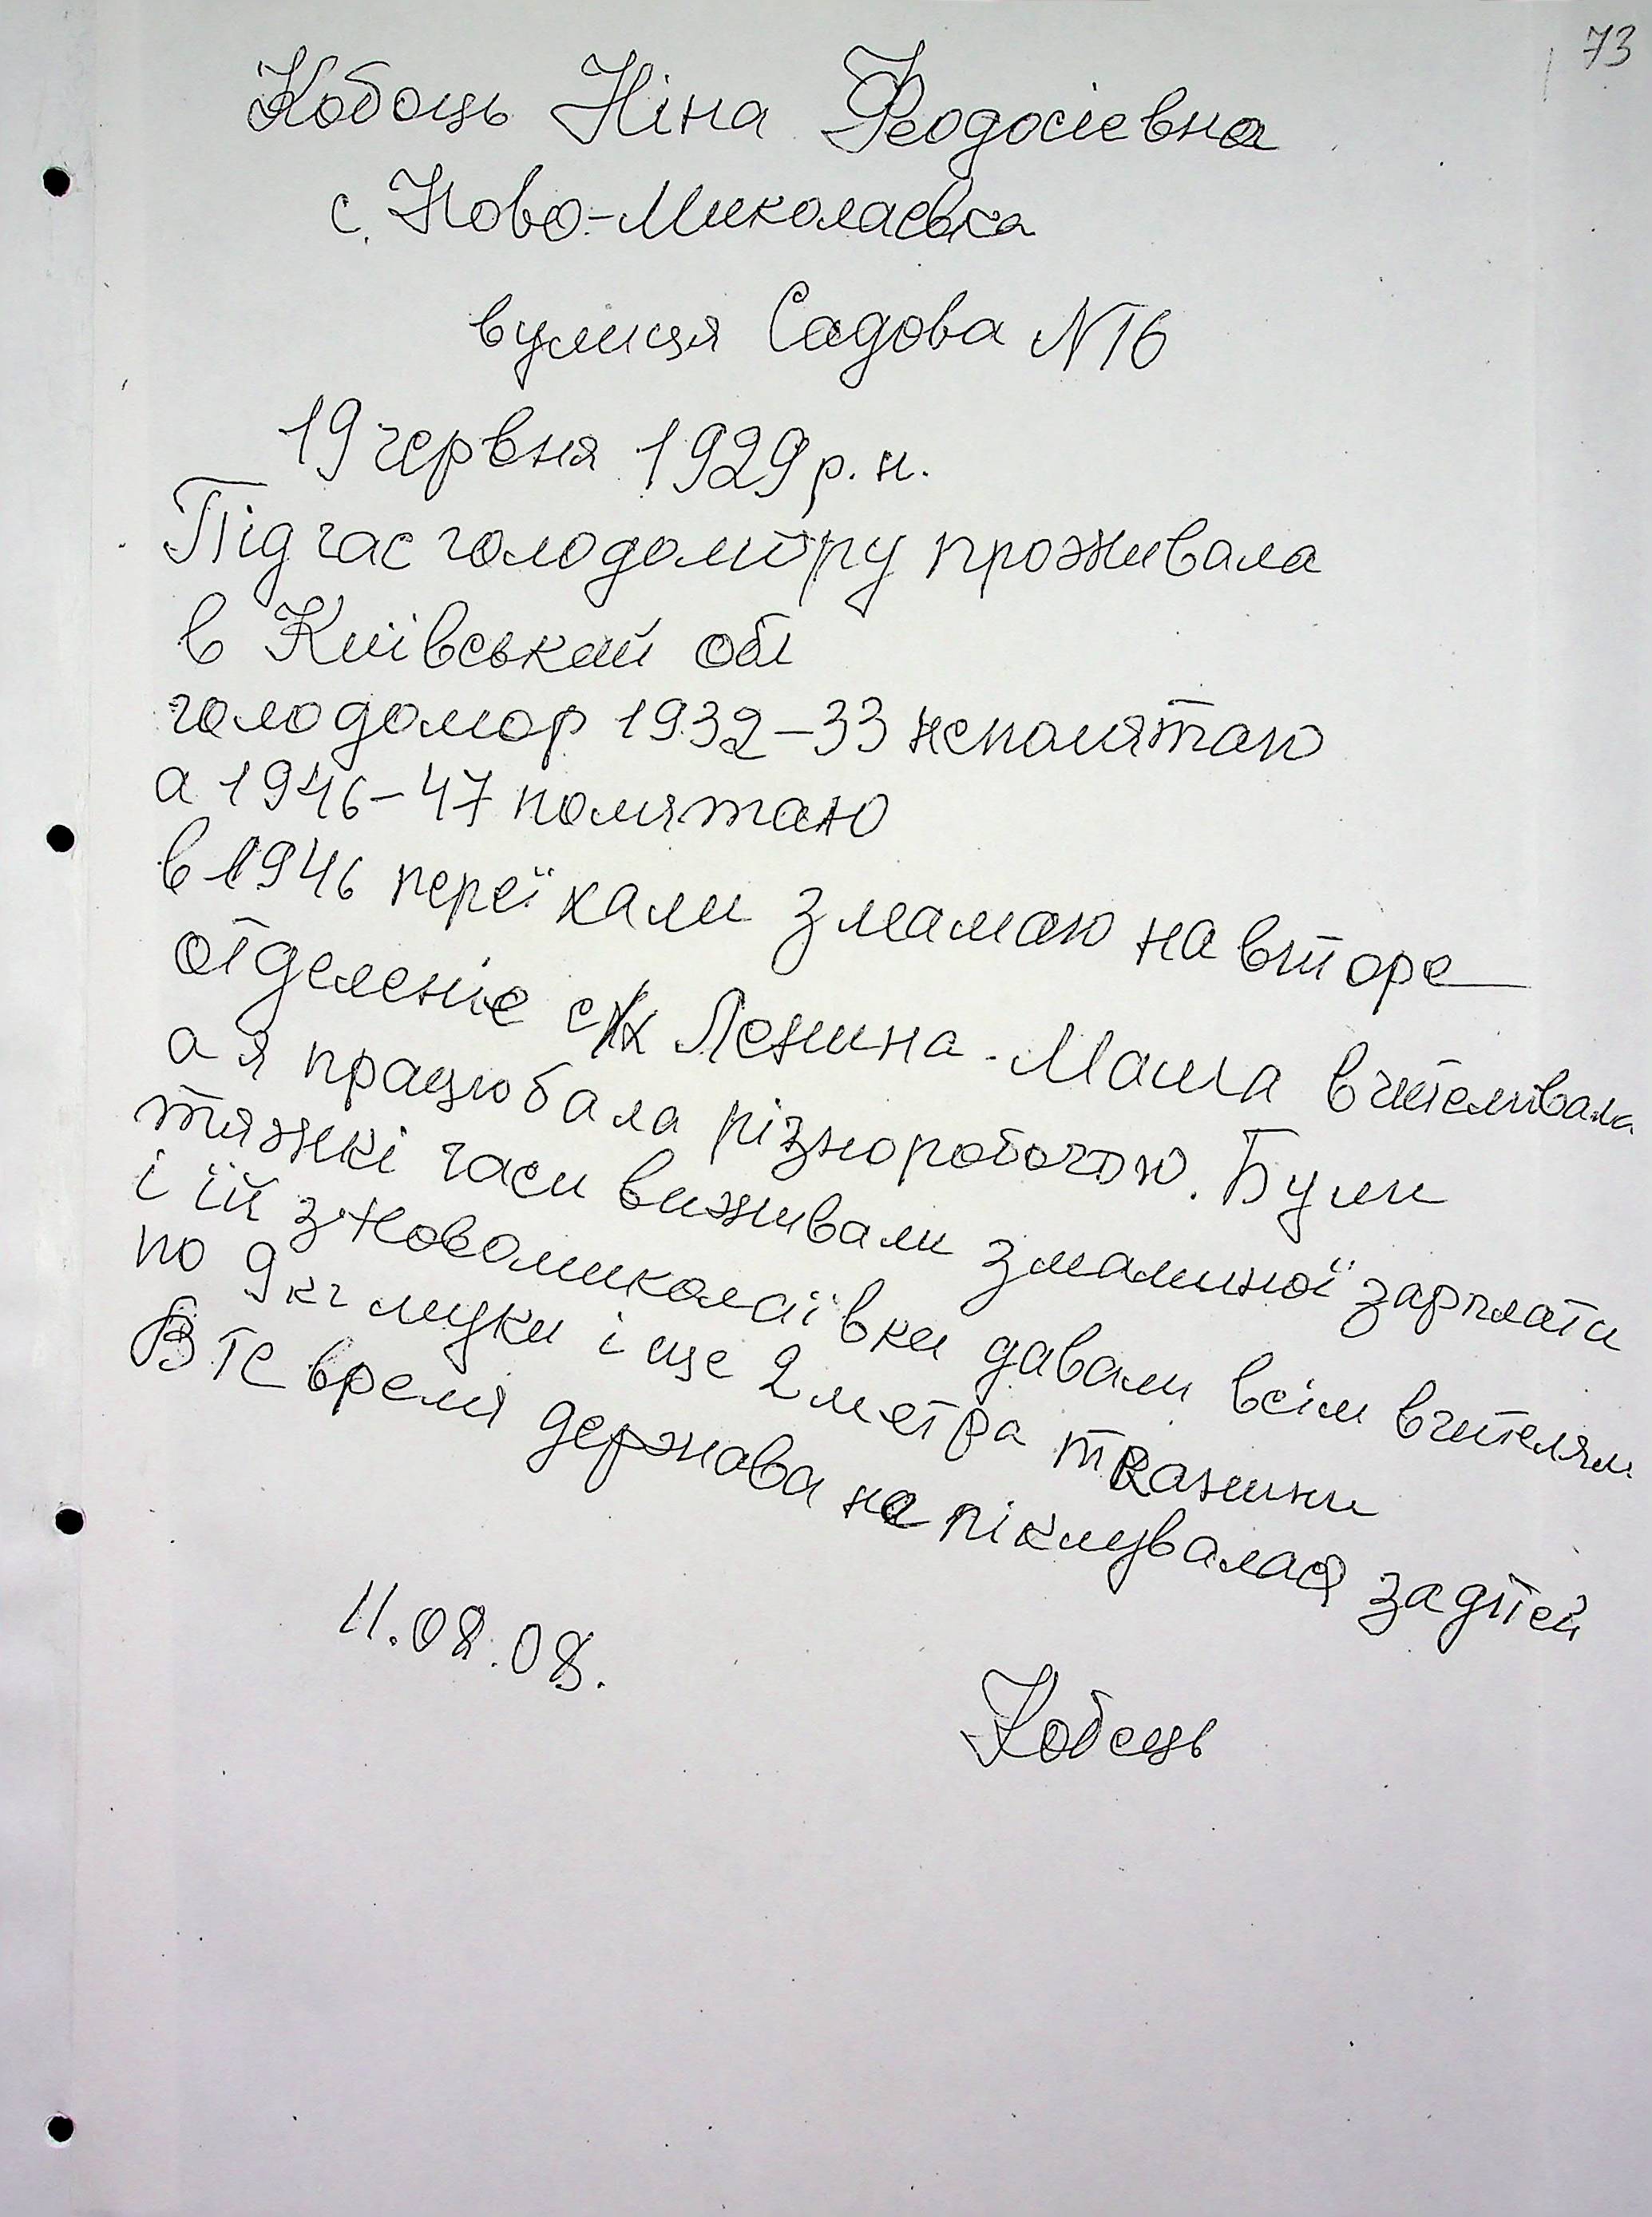 73
Кобець Ніна Феодосіевна
с. Ново-Миколаєвка
вулиця Садова N16
19 червня 1929 р. н.
Під час голодоміру проживала
в Київській обл
голодомор 1932-33 непомятаю
а 1946-47 помятаю
в 1946 переїхали з мамою на второе
отделеніе с/х Ленина. Мама вчителювала
а я працювала різноробочою. Були
тяжкі часи виживали з маминої зарплати
і їй з Новомиколаївки давали всім вчителям
по 9 кг муки і ще 2 метра тканини
В те время держава не піклувалася за дітей
11.08.08.
Кобець